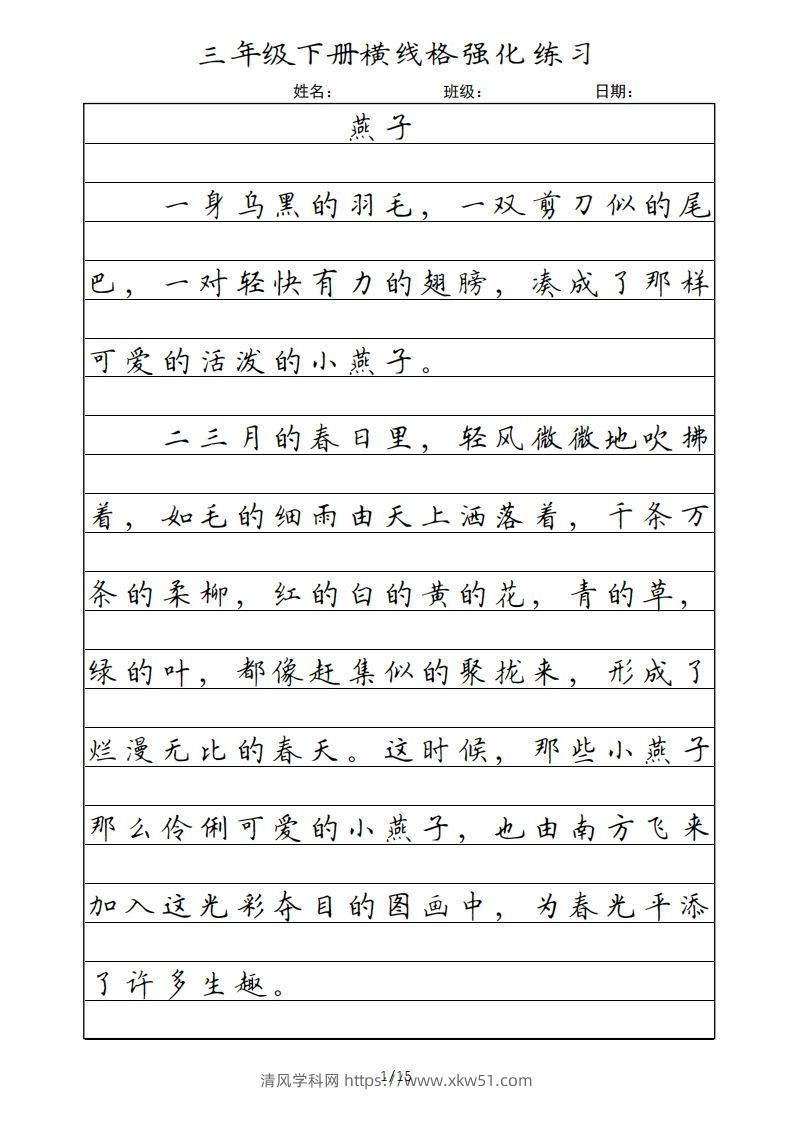 三年级下册横线格强化练习
姓名： 班级： 日期：
燕子
一身乌黑的羽毛，一双剪刀似的尾
巴，一对轻快有力的翅膀，凑成了那样
可爱的活泼的小燕子。
二三月的春日里，轻风微微地吹拂
着，如毛的细雨由天上洒落着，千条万
条的柔柳，红的白的黄的花，青的草，
绿的叶，都像赶集似的聚拢来，形成了
烂漫无比的春天。这时候，那些小燕子
那么伶俐可爱的小燕子，也由南方飞来
加入这光彩夺目的图画中，为春光平添
了许多生趣。
1/15
清风学科网 https://www.xkw51.com